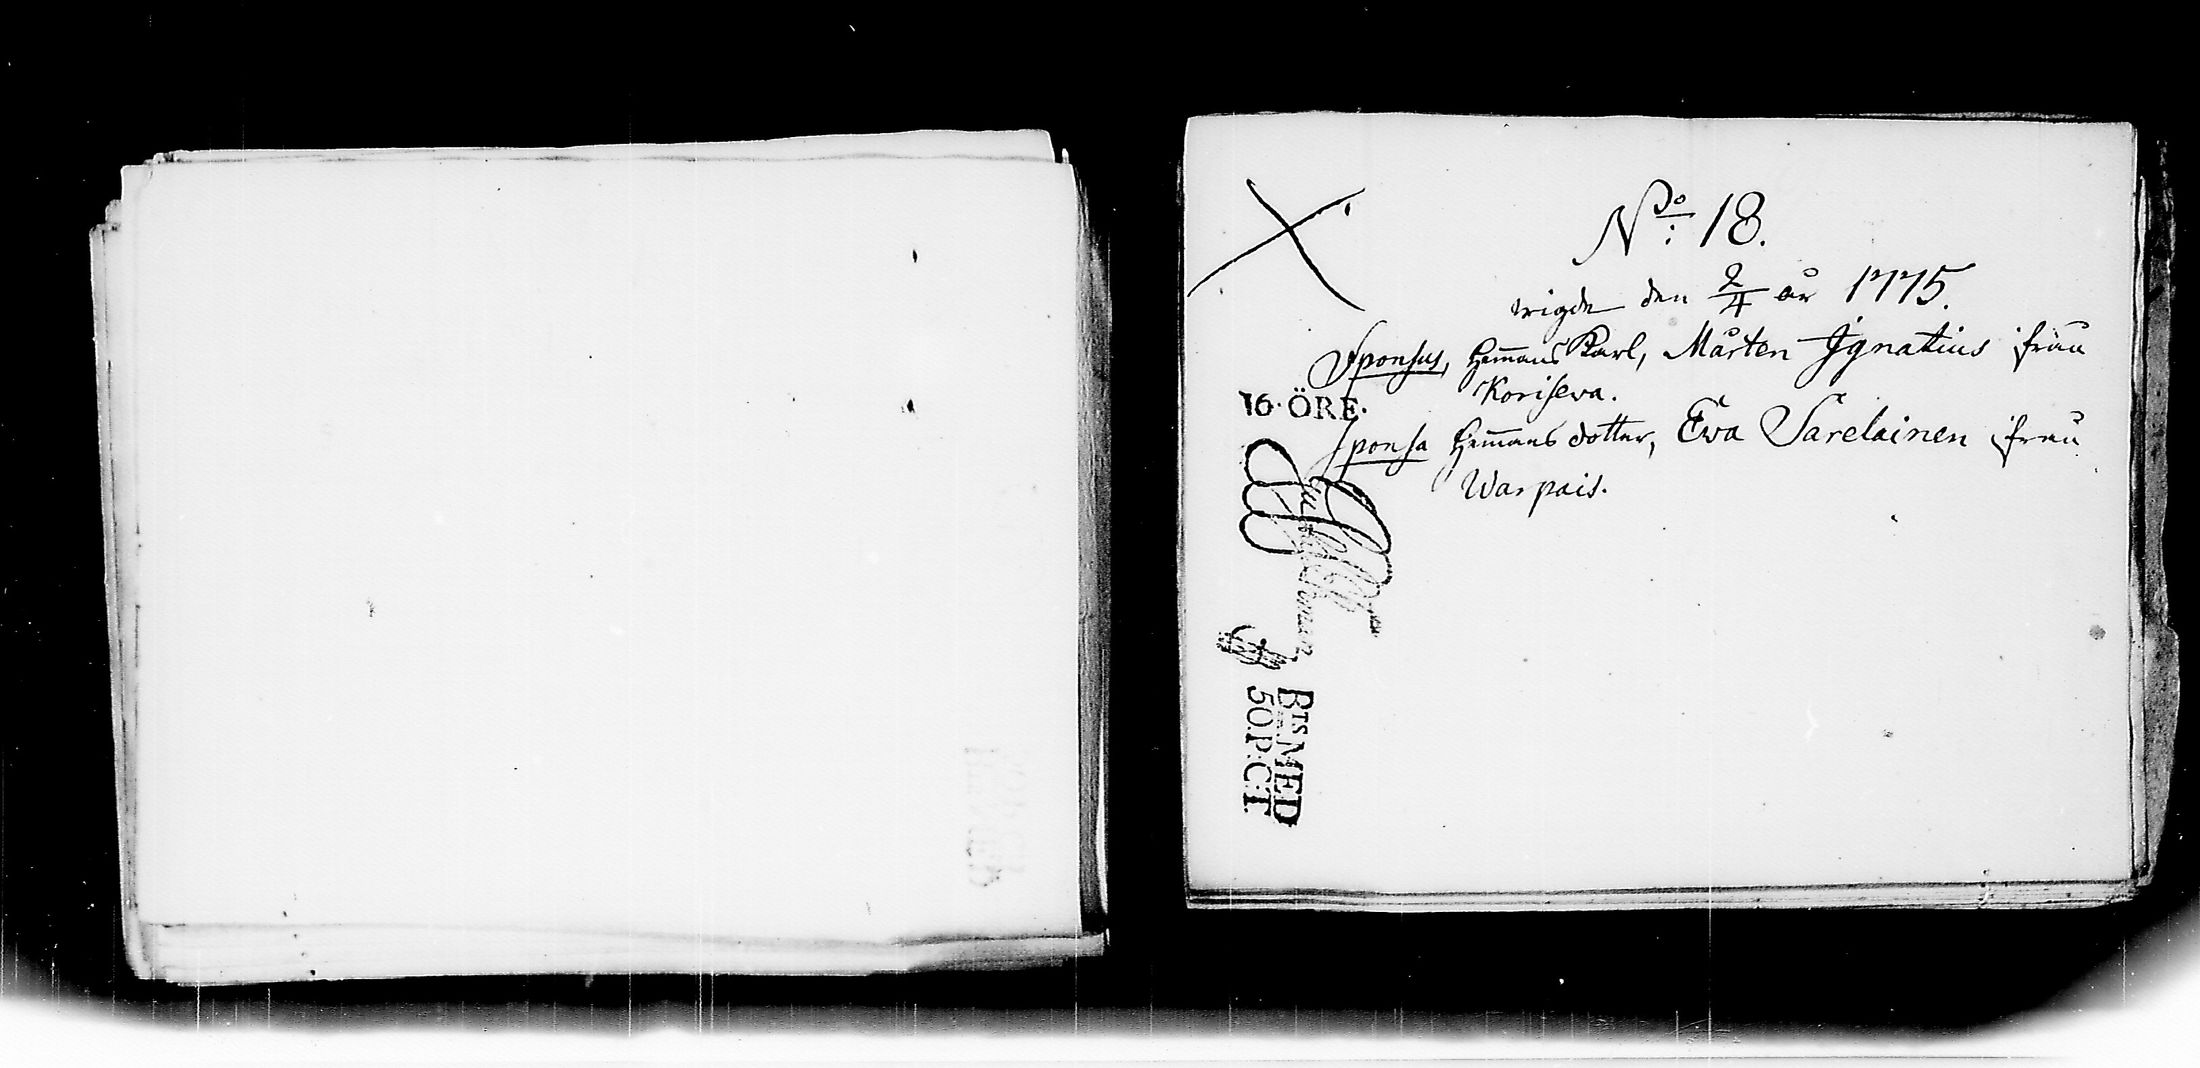 No: 18.
wigde den 2/4 år 1775.
Sponsus, Hem̄ans Karl, Mårten Ignatius från
Korisewa.
16. ÖRE.
Sponsa Hem̄ans dotter, Ewa Sarelainen från
Warpais.
BTS MED
50.P:C:T.